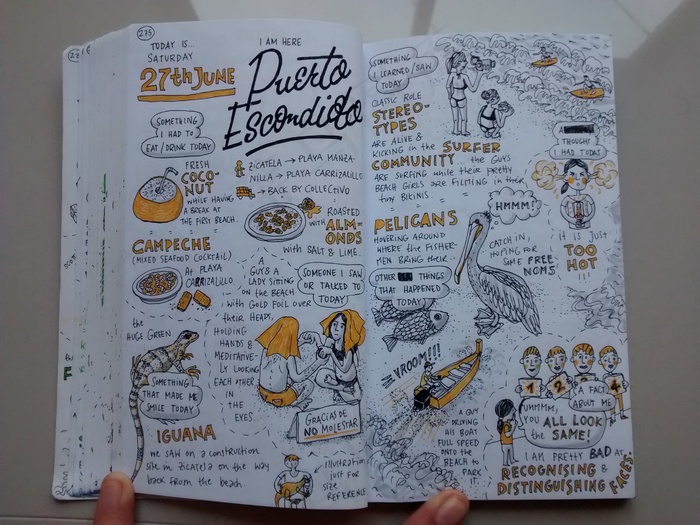 275
TODAY IS...
SATURDAY
27th JUNE
I AM HERE
Puerto
Escondido
SOMETHING
I HAD TO
EAT/DRINK TODAY
FRESH
COCO-
NUT
WHILE HAVING
A BREAK AT
THE FIRST BEACH.
& ZICATELA → PLAYA MANZA-
NILLA → PLAYA CARRIZALILLO
→ BACK BY COLLECTIVO
ROASTED
with ALM-
ONDS
with SALT & LIME.
CAMPECHE
(MIXED SEAFOOD COCKTAIL)
AT PLAYA
CARRIZALILLO.
SOMEONE I SAW
OR TALKED TO
TODAY
A
GUY &
A LADY SITTING
ON THE BEACH
with GOLD FOIL OVER
their HEADS,
HOLDING
HANDS &
MEDITATIVE-
LY LOOKING
EACH OTHER
IN
THE
EYES
GRACIAS DE
NO MOLESTAR
the
HUGE GREEN
SOMETHING
THAT MADE ME
SMILE TODAY
IGUANA
we SAW on a CONSTRUCTION
site in Zicatela on the way
back from the beach
ILLUSTRATION
just for
size
REFERENCE
SOMETHING
I LEARNED/SAW
TODAY
CLASSIC ROLE
STEREO-
TYPES
ARE ALIVE &
KICKING in the SURFER
COMMUNITY... the GUYS
ARE SURFING while their pretty
BEACH GIRLS are FILMING in their
tiny BIKINIS
A
THOUGHT
I HAD TODAY
HMMM!
it is just
TOO
HOT
!!!
PELICANS
HOVERING AROUND
WHERE the FISHER-
MEN BRING their
CATCH IN,
HOPING FOR
SOME FREE
NOMS
OTHER THINGS
THAT HAPPENED
TODAY
VROOM!!!
A GUY
DRIVING
his BOAT
FULL SPEED
ONTO the
BEACH to
PARK
IT.
1 2 4
A FACT
ABOUT ME
UMMMM,
YOU ALL LOOK
the SAME!
I AM PRETTY BAD at
RECOGNISING &
DISTINGUISHING
FACES.